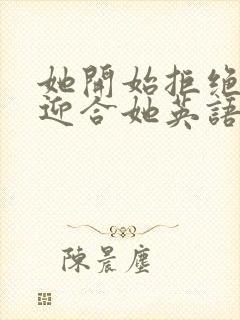 她開始拒絕
迎合她英語
陳晨塵